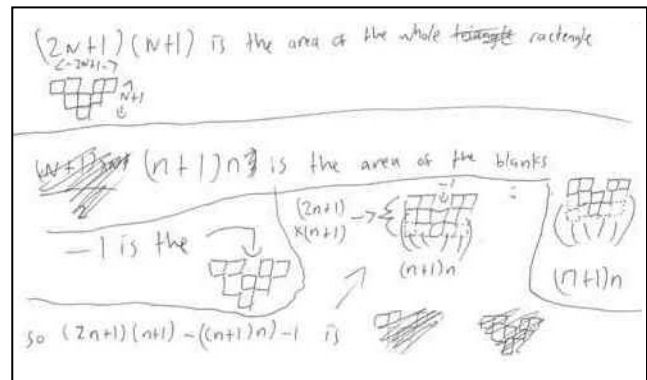 (2N+1)(N+1) is the area of the whole triangle ractengle
<-2N+1->
N+1
(n+1)n is the area of the blanks
-1 is the
(2n+1)
x(n+1)
-1
(n+1)n
=
(n+1)n
so (2n+1)(n+1)-((n+1)n)-1 is